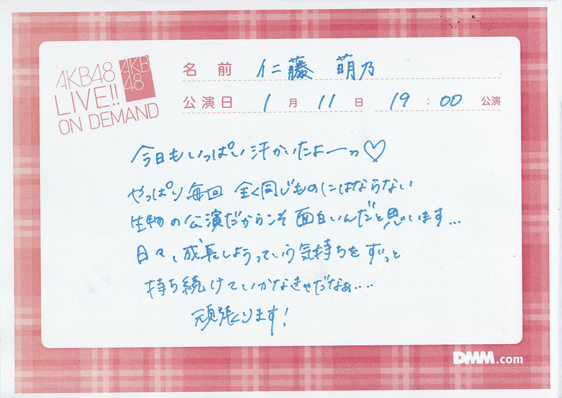 AKB48
LIVE!!
ON DEMAND
AKB
48
名前 仁藤 萌乃
公演日 1月11日 19:00 公演
今日もいっぱい汗かいたよーっ♡
やっぱり毎回 全く同じものにはならない
生物の公演だからこそ面白いんだと思います...
日々、成長しようっていう気持ちをずっと
持ち続けていかなきゃだなぁ...
頑張ります!
DMM.com